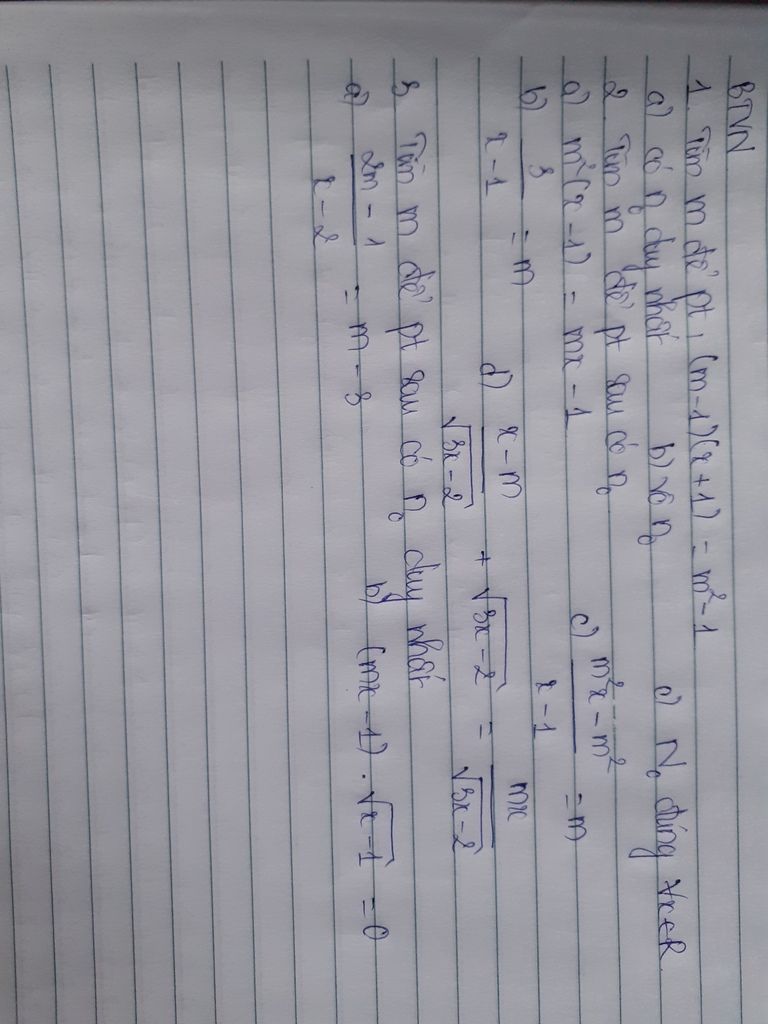 BTVN
1. Tìm m để pt, (m-1)(x+1) = m²-1
a) có n₀ duy nhất b) vô n₀ c) N₀ đúng ∀x∈R
2. Tìm m để pt sau có n₀
a) m²(x-1) = mx-1 c) (m²x-m²)/(x-1) = m
b) 3/(x-1) = m d) (x-m)/√(3x-2) + √(3x-2) = mx/√(3x-2)
3 Tìm m để pt sau có n₀ duy nhất
a) (2m-1)/(x-2) = m-3 b) (mx-1).√(x-1) = 0